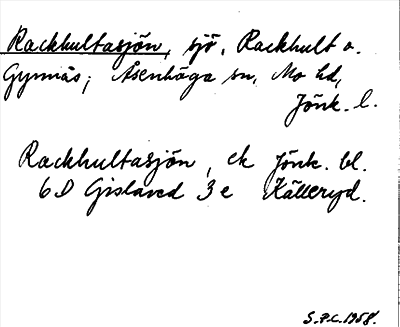 Rackhultasjön, sjö, Rackhult o.
Gynnås; Åsenhöga sn, Mo hd,
Jönk. l.
Rackhultasjön, ek Jönk. bl.
6 D Gislaved 3 e Källeryd.
S.F.C. 1958.